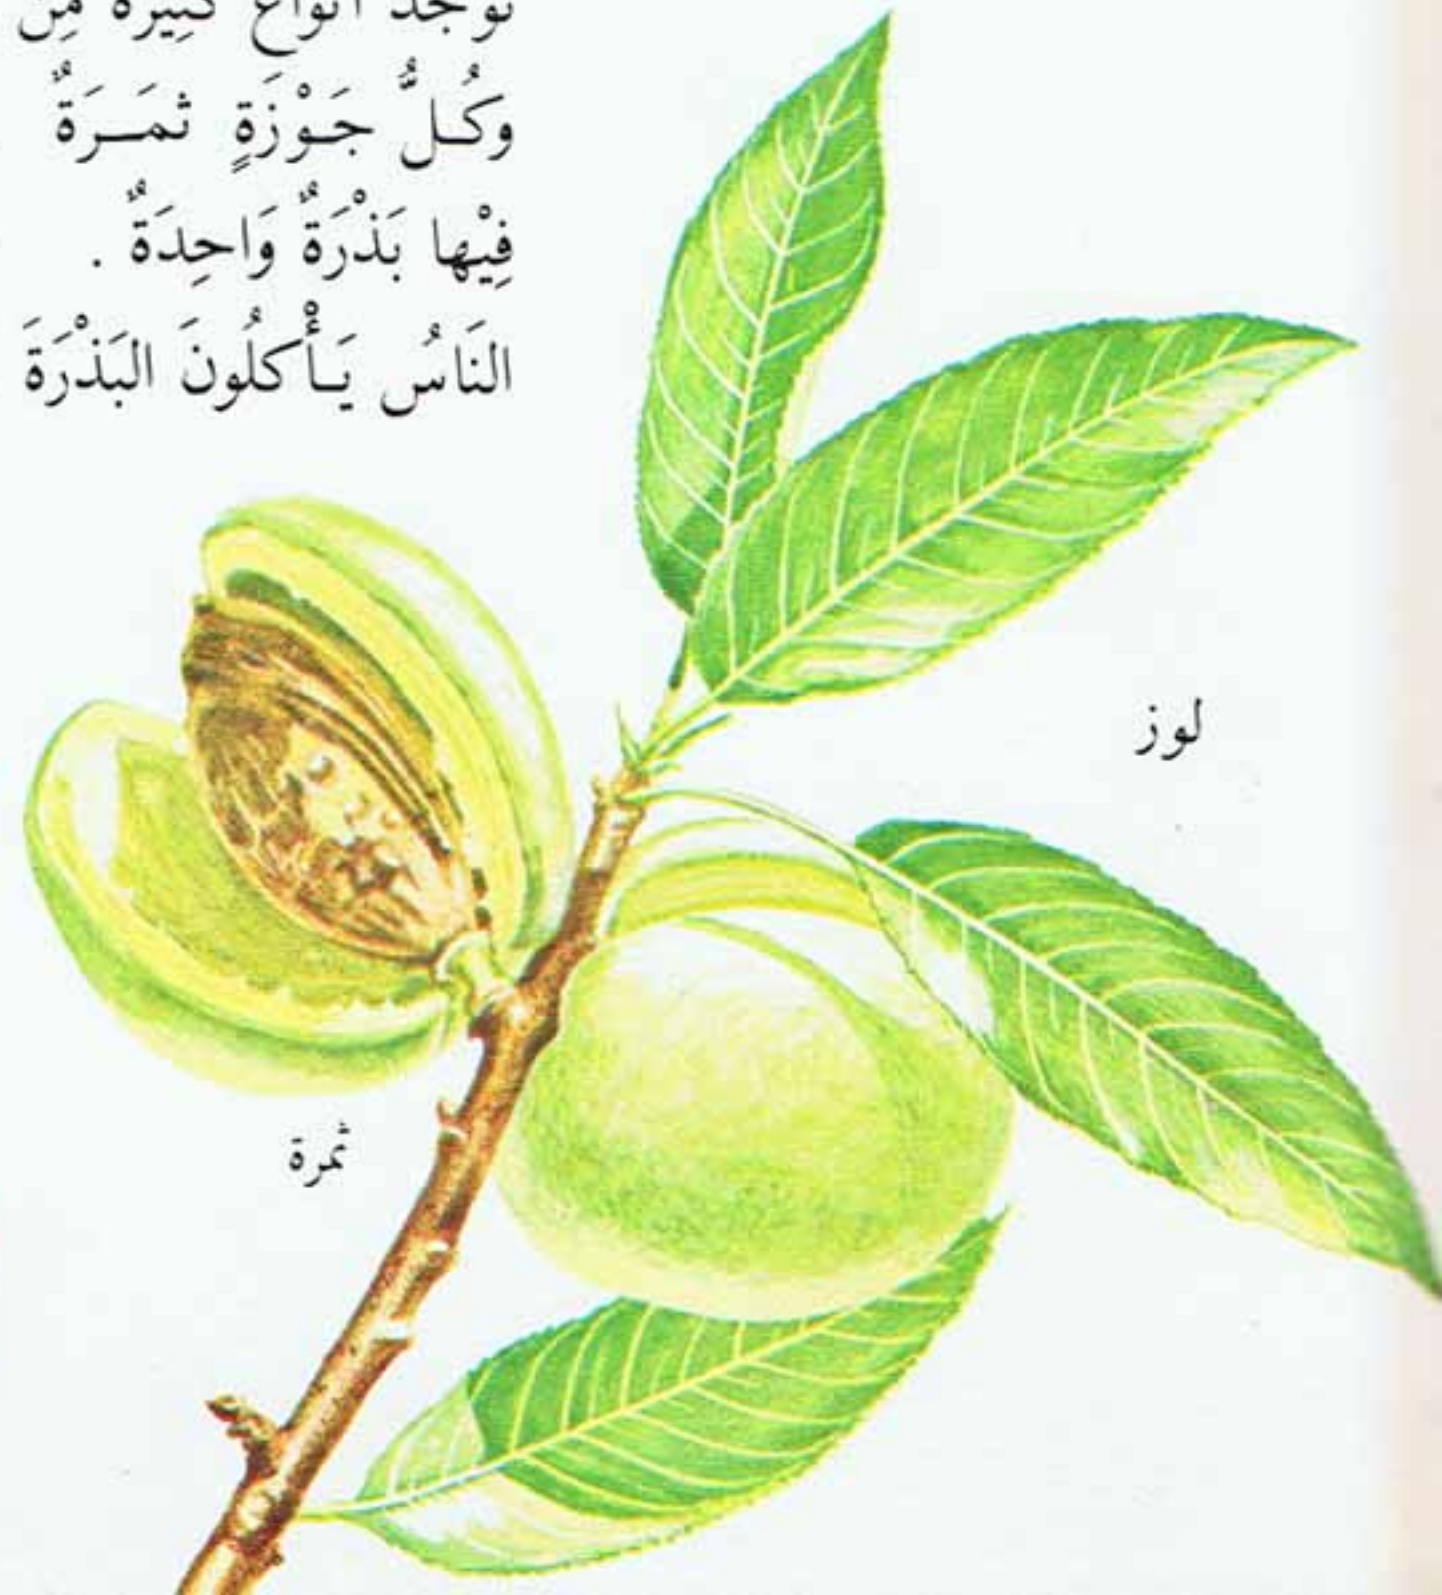 توجد أنواع كَثِيرَة مِن
وَكُلُّ جَوْزَةٍ ثمَرَةٌ
فِيْها بَذْرَةٌ وَاحِدَةٌ .
النَاسُ يَأْكلُونَ البَذْرَةَ
لوز
ثمرة